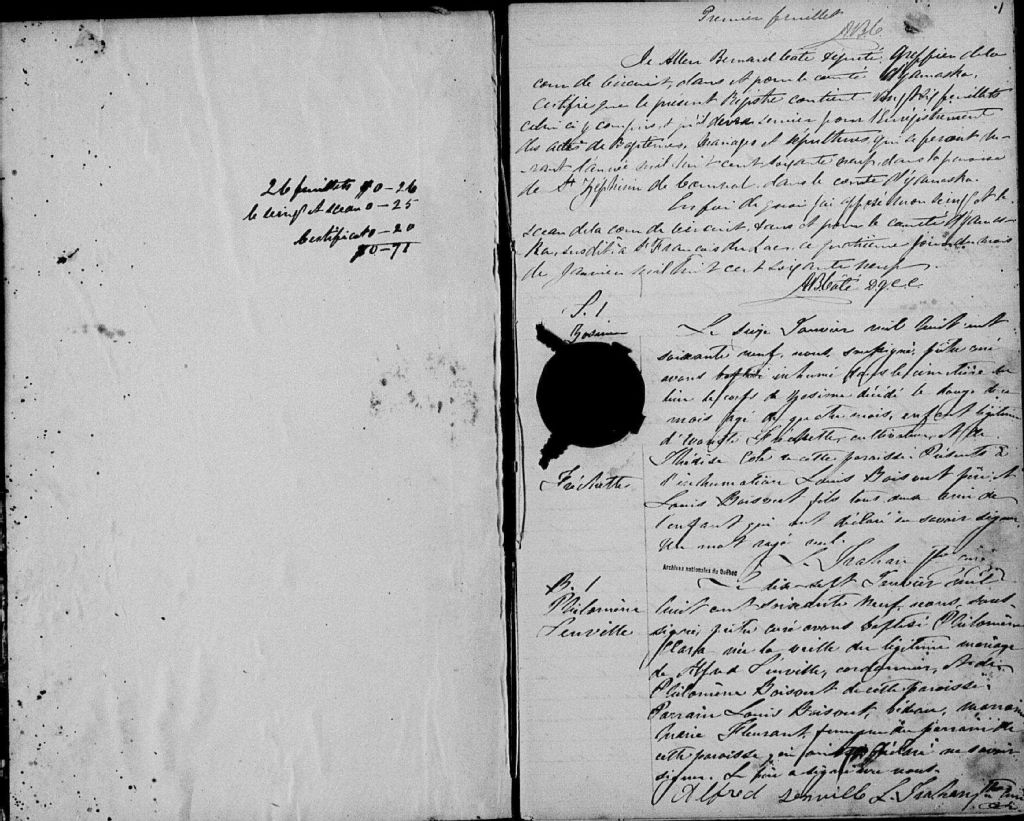 26 feuillets $0-26
le seing et sceau 0-25
Certificat 0-20
$0-71
1
Premier feuillet
ABC
Je Allen Bernard Coté député Greffier de la
cour de circuit, dans et pour le comté d'Yamaska,
certifie que le présent Registre contient vingt six feuillets
celui ci y compris, et qu'il devra servir pour l'Enrégistrement
des actes de Baptêmes, Mariages et Sépultures qui se feront du-
rant l'année mil huit cent soixante neuf, dans la paroisse
de St Zéphirin de Courval, dans le comté d'Yamaska.
En foi de quoi j'ai apposé mon seing et le
sceau de la cour de circuit, dans et pour le comté d'Yamas-
ka, susdit, à St François du Lac, ce quatrième jour du mois
de Janvier mil huit cent soixante neuf.
AB Côté D.G.C.C.
S. 1
Zosime
Fréchette
Le seize Janvier mil huit cent
soixante neuf, nous, soussigné, prêtre curé
avons inhumé dans le cimetière du
lieu le corps de Zosime décédé le douze du
mois agé de quatre mois, enfant légitime
d' Fréchette, cultivateur, et de
Thérèse Coté de cette paroisse. Présents à
l'inhumation Louis Boisvert père, et
Louis Boisvert fils tous deux de
l'enfant qui ont déclaré ne savoir signer.
Un mot rayé nul.
L. Trahan Ptre curé
Archives nationales du Québec
B. 1
Philomène
Lenville
Le dix-sept Janvier mil
huit cent soixante neuf, nous, sous-
signé, prêtre curé avons baptisé Philomène
Clara née la veille du légitime mariage
de Alfred Lenville, cordonnier, et de
Philomène Boisvert de cette paroisse.
Parrain Louis Boisvert, marraine
Marie Fleurant, femme du parrain de
cette paroisse, qui ont déclaré ne savoir
signer. Le père a signé avec nous.
Alfred Lenville L. Trahan Ptre Curé